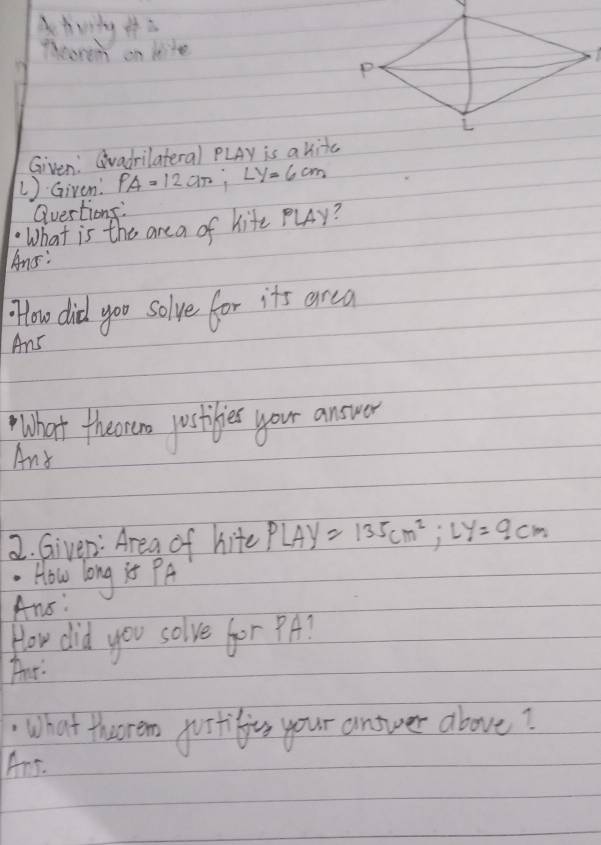 Activity # 2
Theorem on kite
P
L
Given: Quadrilateral PLAY is a kite
1.) Given: PA = 12 cm; LY = 6 cm
Questions:
• What is the area of kite PLAY?
Ans:
• How did you solve for its area
Ans
• What theorem justifies your answer
Ans
2. Given: Area of kite PLAY = 135 cm²; LY = 9 cm
• How long is PA
Ans:
How did you solve for PA?
Ans:
• What theorem justifies your answer above?
Ans.